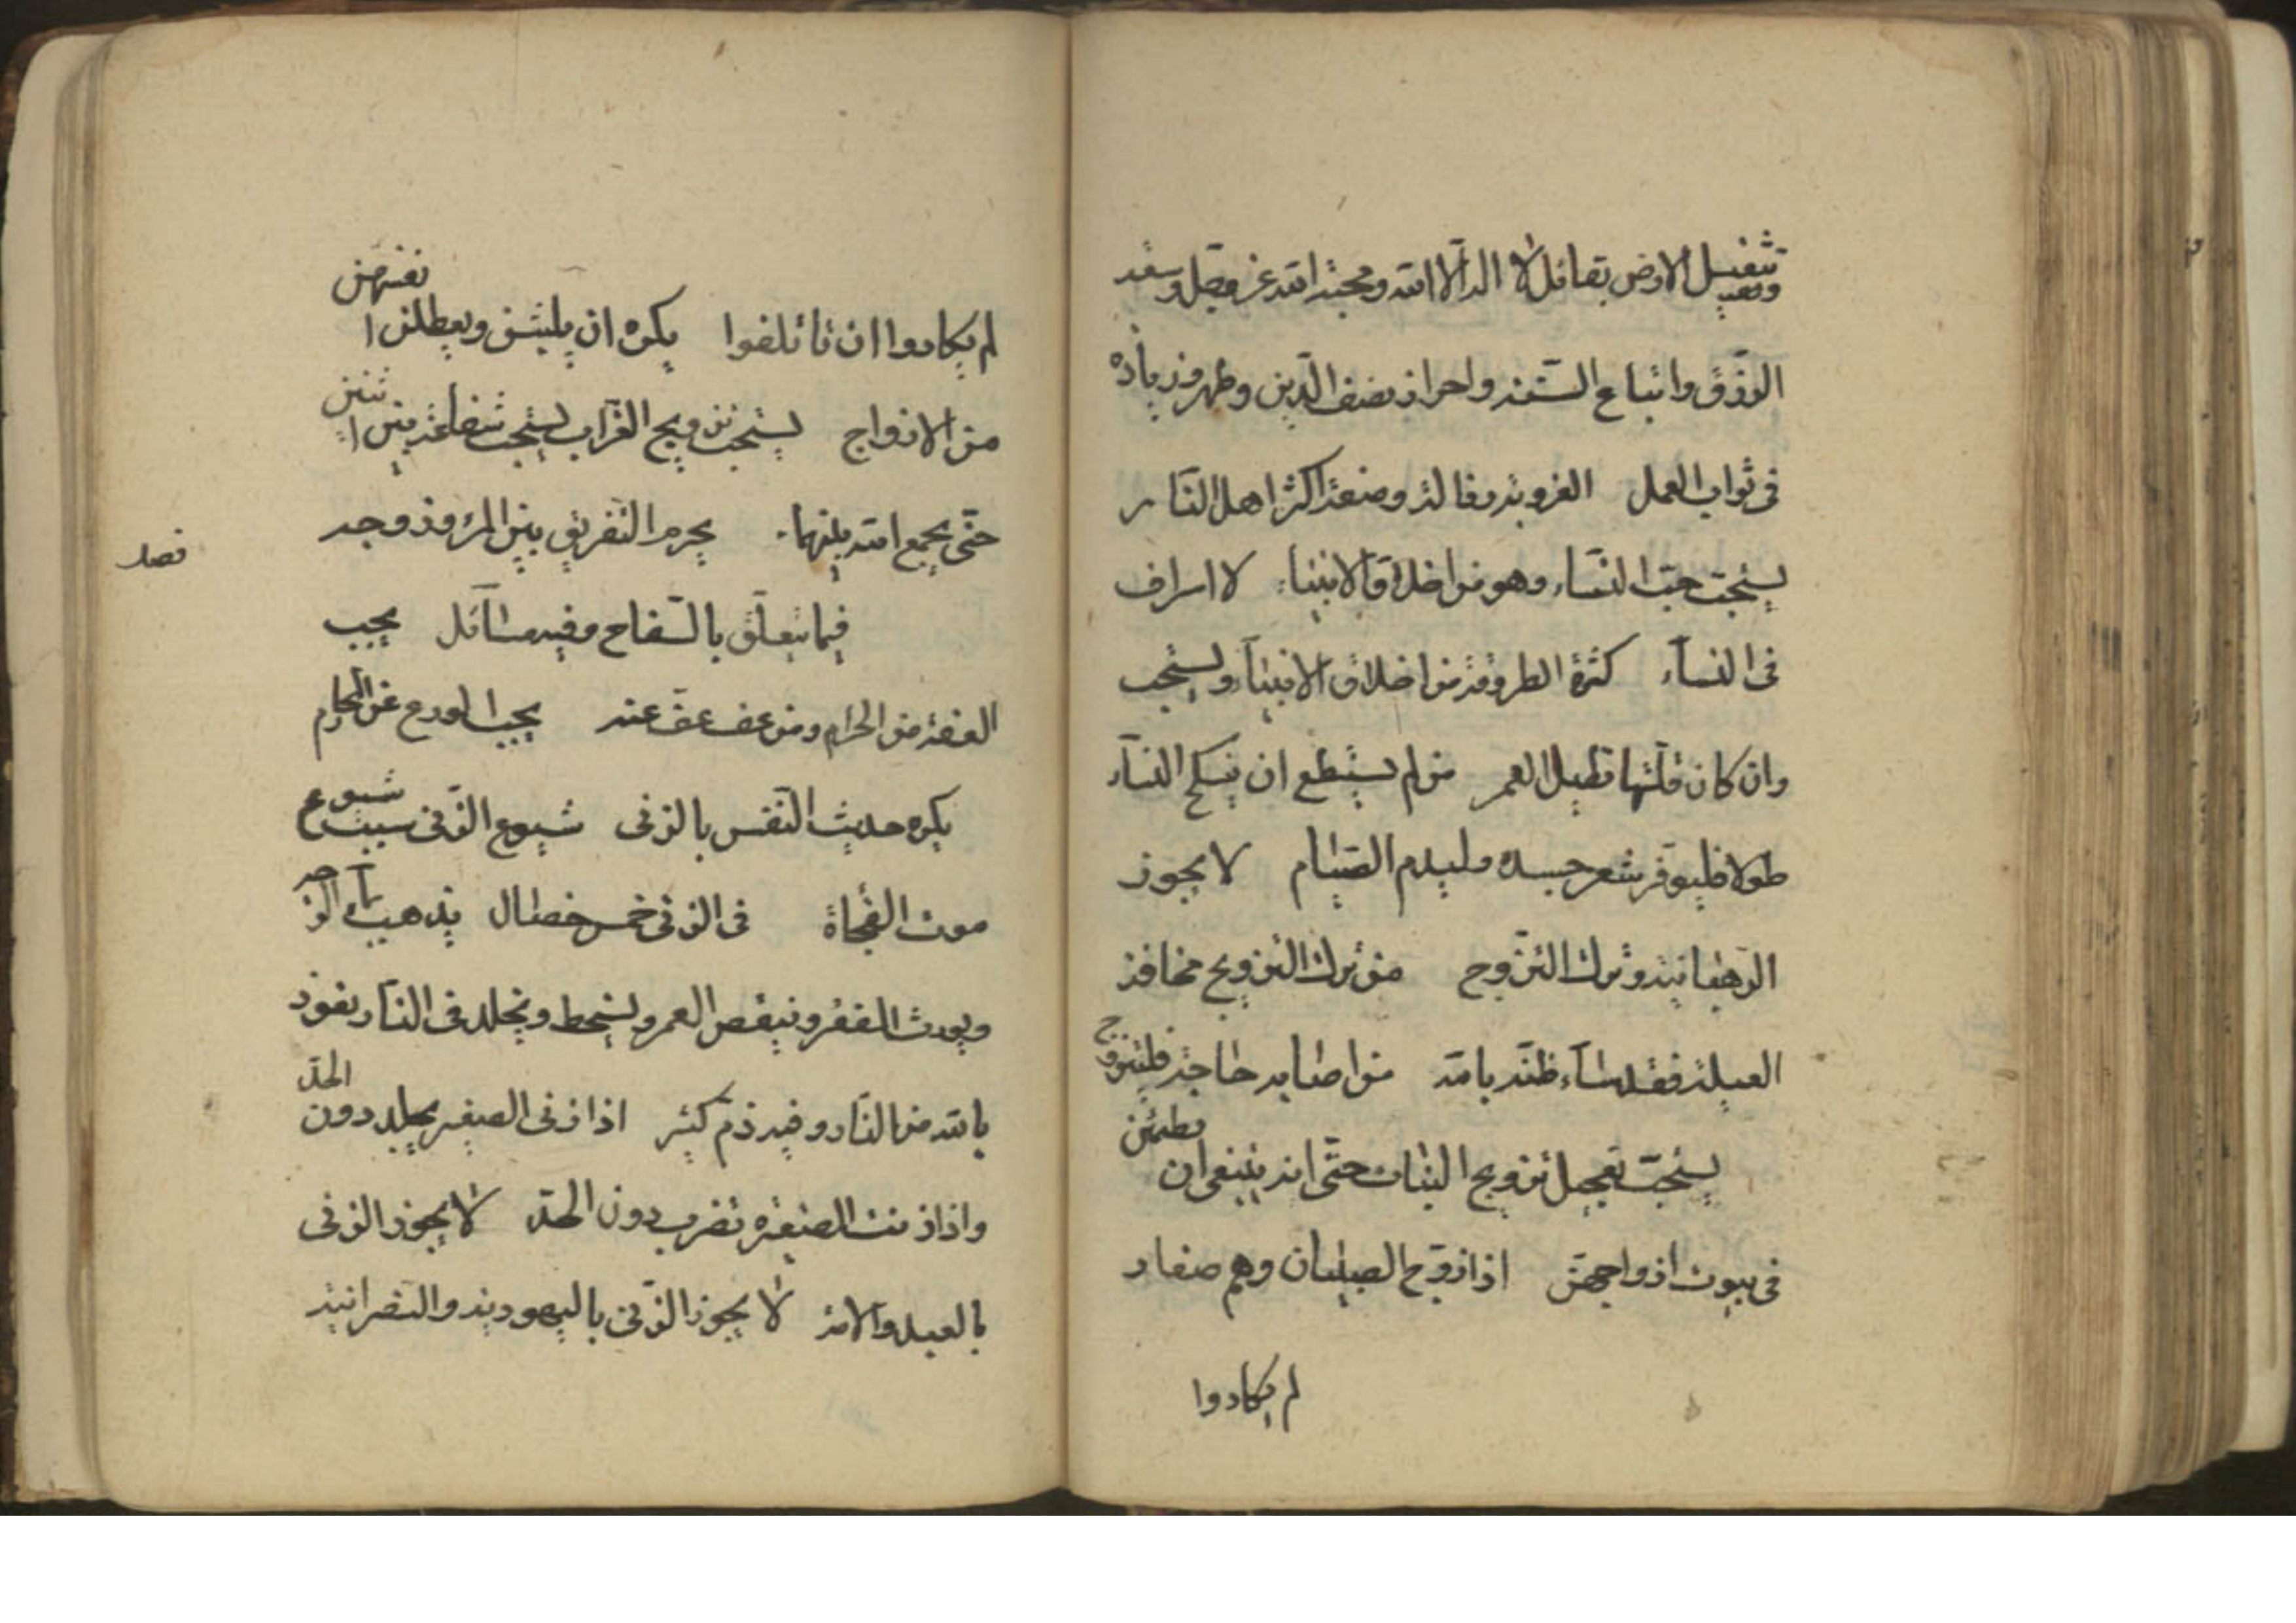 وتثقيل الارض بقائل لا اله الا الله ومحبة الله عز وجل وسعة
الرزق واتباع السنة واحراز نصف الدين وظهر وزيادة
فى ثواب العمل العزوبة رذالة وصنعة اكثر اهل النار
يستحب حب النساء وهو من اخلاق الانبياء لا اسراف
فى النساء كثرة الطروقة من اخلاق الانبياء ويستحب
وان كان قلتها تطيل العمر من لم يستطع ان ينكح النساء
طولا فليوفر شعر جسده وليدم الصيام لا يجوز
الرهبانية وترك التزوج من ترك التزويج مخافة
العيلة فقد ساء ظنه بالله من اصابه حاجة فليتزوج
يستحب تعجيل تزويج البنات حتى انه ينبغى ان يطمثن
فى بيوت ازواجهن اذا زوج الصبيان وهم صغار
لم يكادوا
لم يكادوا ان تائلفوا يكره ان يلبثن ويعطلن انفسهن
من الازواج يستحب تزويج العزاب يستحب شفاعة بين اثنين
حتى يجمع الله بينهما يحرم التفريق بين المرء وزوجه
فصل
فيما يتعلق بالسفاح وفيه مسائل يجب
العفة من الحرام ومن عف عف عنه يجب الورع عن المحارم
يكره حديث النفس بالزنى شيوع الزنى سبب شيوع
موت الفجاة فى الزنى خمس خصال يذهب بماء الوجه
ويورث الفقر وينقص العمر ويسخط ويخلد فى النار نعوذ
بالله من النار وفيه ذم كثير اذا زنى الصغير يجلد دون الحد
واذا زنت الصغيرة تضرب دون الحد لا يجوز الزنى
بالعبد والامة لا يجوز الزنى باليهودية والنصرانية